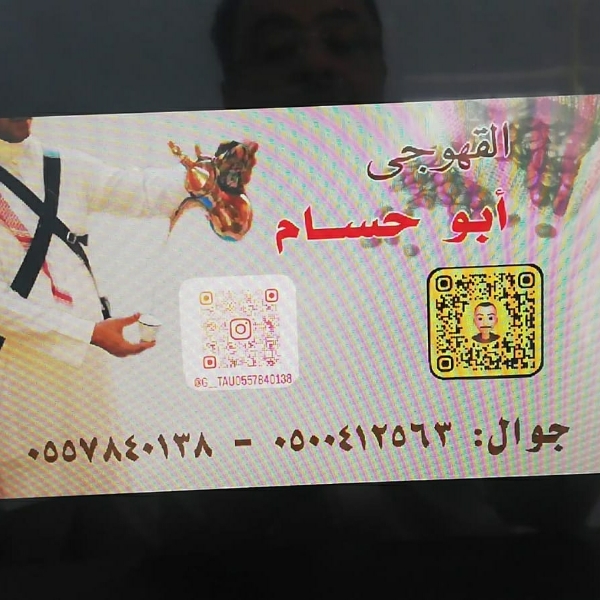 القهوجي
أبو حسام
@G_TAU0557840138
جوال: ٠٥٠٠٤١٢٥٦٣ - ٠٥٥٧٨٤٠١٣٨